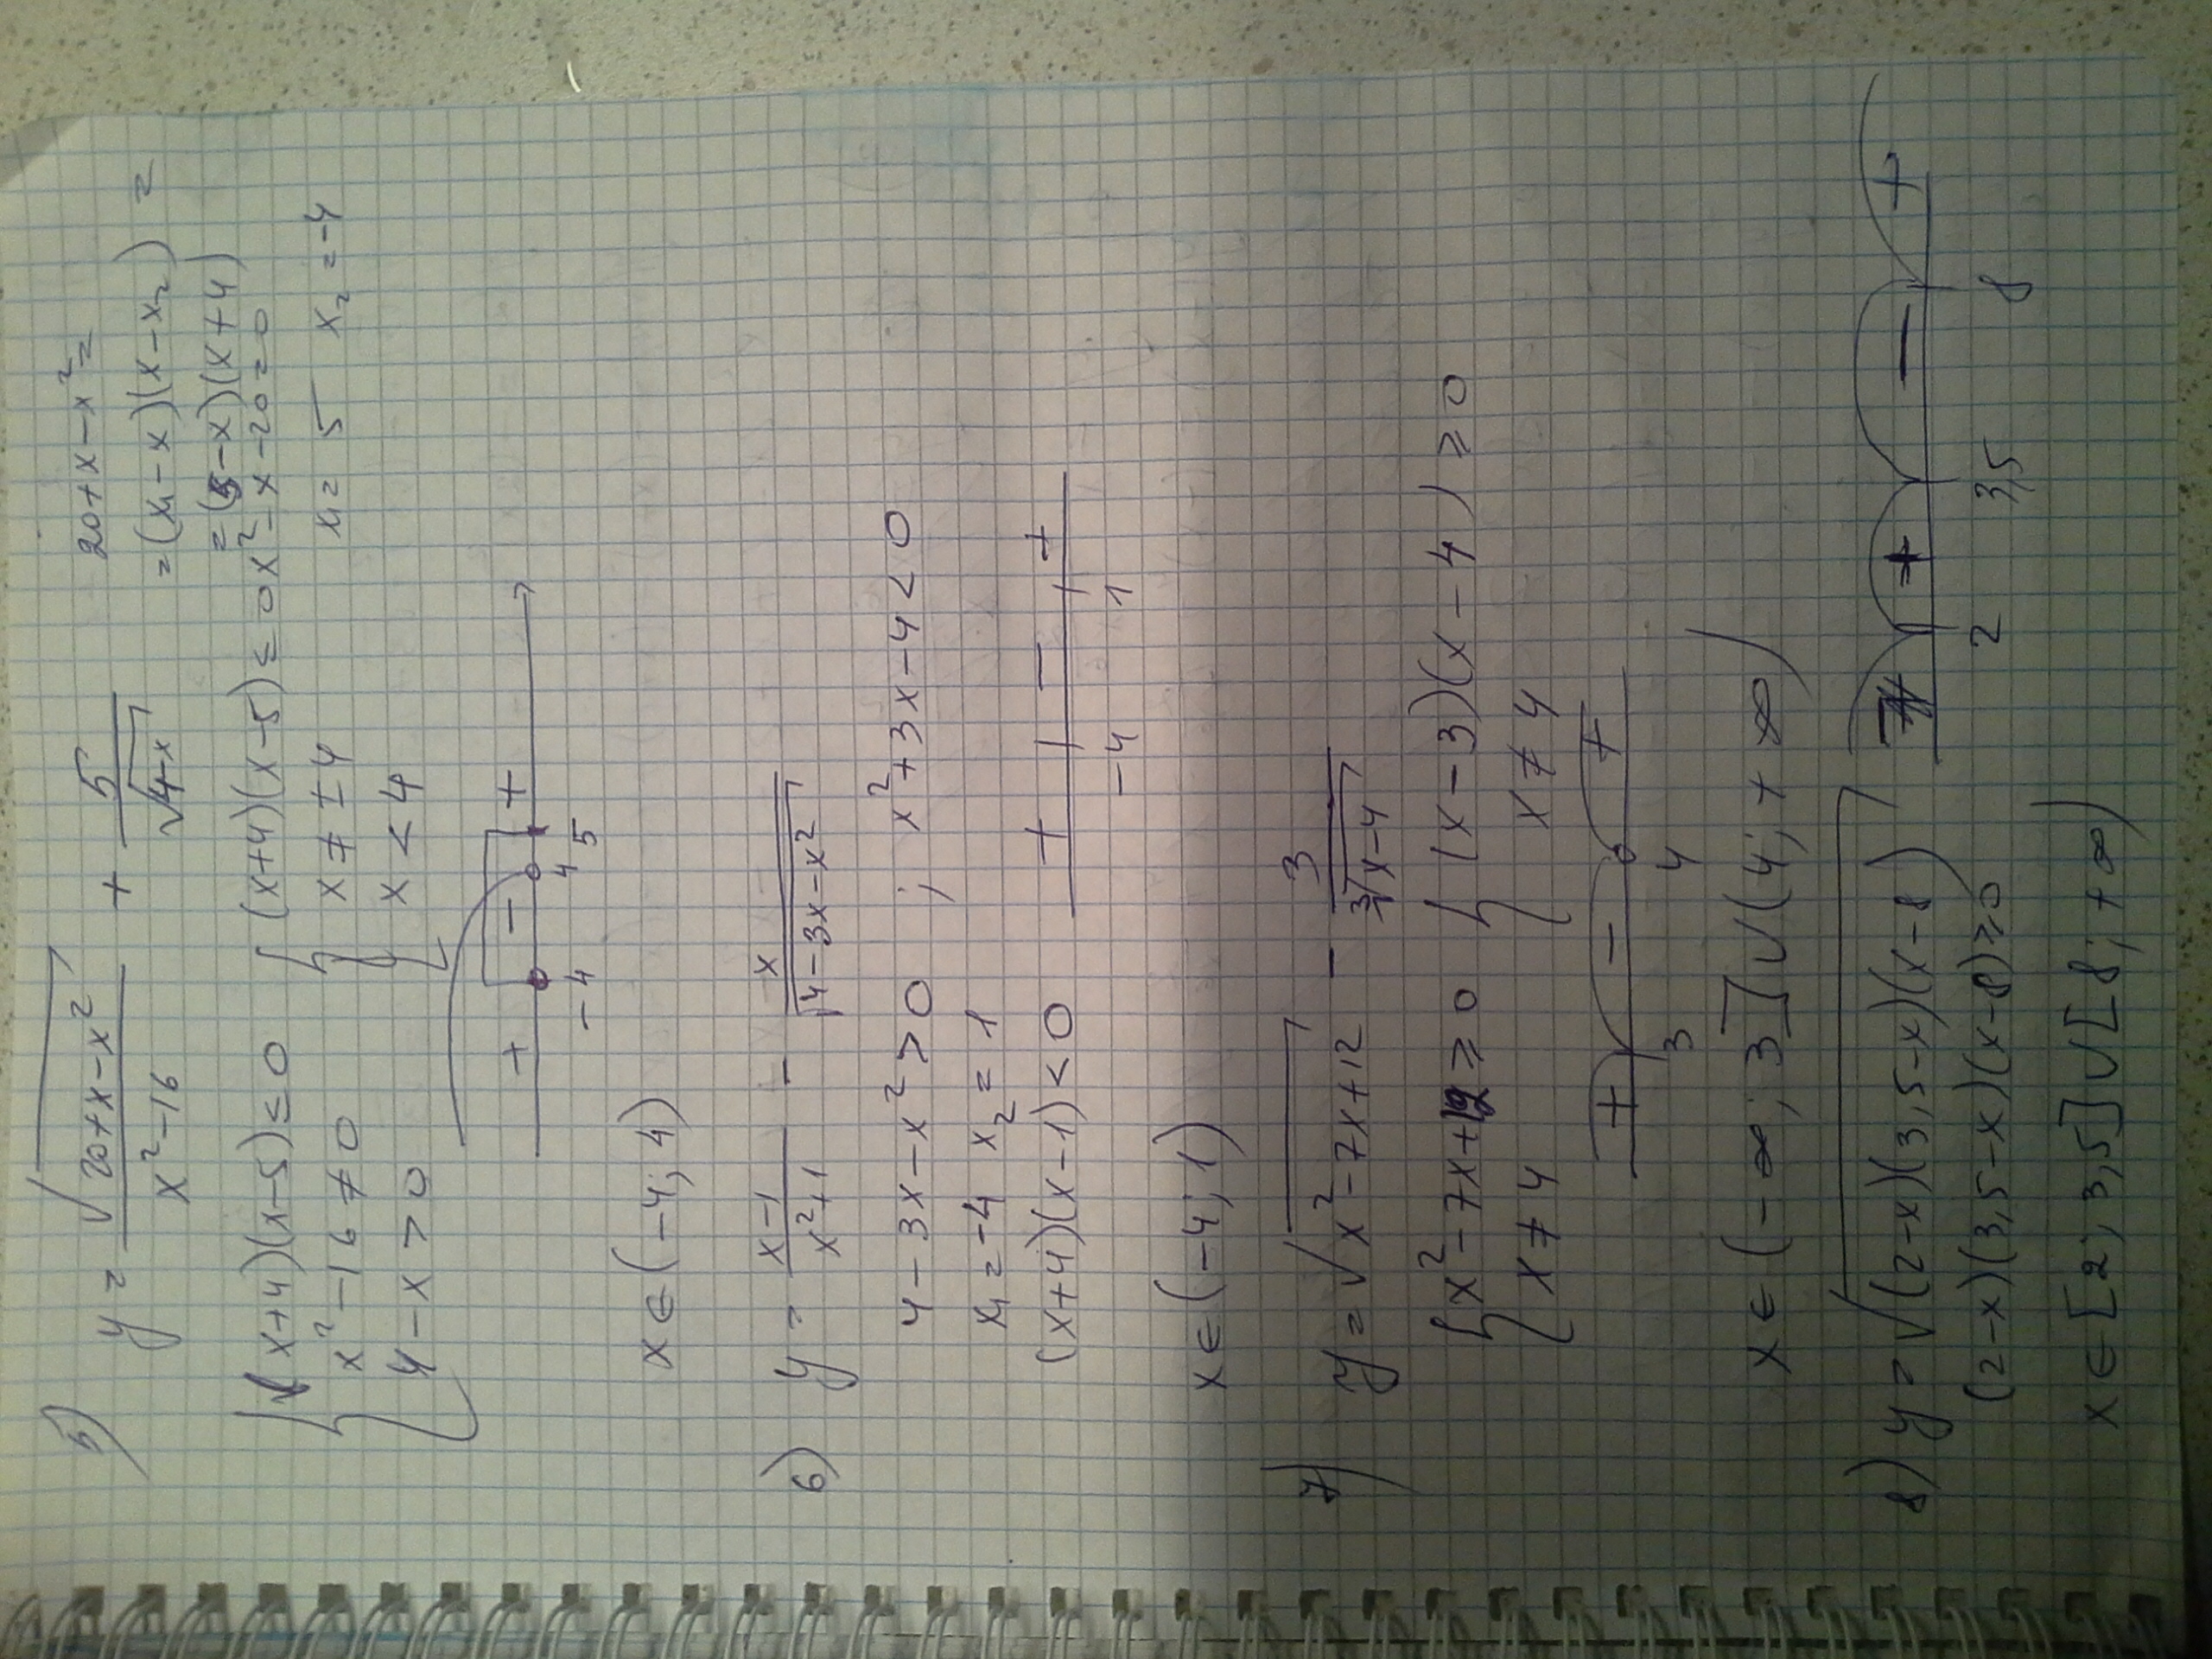 5) y = √(20+x-x²) / (x²-16) + 5 / √(4-x)
20+x-x² =
= (x₁-x)(x-x₂) =
= (5-x)(x+4)
{ (x+4)(x-5) ≤ 0 { (x+4)(x-5) ≤ 0 x²-x-20=0
x²-16 ≠ 0 x ≠ ±4 x₁= 5 x₂=-4
4-x > 0 x < 4
+ - +
-4 4 5
x ∈ (-4; 4)
6) y = (x-1) / (x²+1) - x / √(4-3x-x²)
4-3x-x² > 0 ; x²+3x-4 < 0
x₁=-4 x₂=1
(x+4)(x-1)<0 + - +
-4 1
x ∈ (-4; 1)
7) y = √(x²-7x+12) - 3 / ∛(x-4)
{ x²-7x+12 ≥ 0 { (x-3)(x-4) ≥ 0
x ≠ 4 x ≠ 4
+ - +
3 4
x ∈ (-∞; 3] ∪ (4; +∞)
8) y = √((2-x)(3,5-x)(x-8))
(2-x)(3,5-x)(x-8) ≥ 0
+ - +
2 3,5 8
x ∈ [2; 3,5] ∪ [8; +∞)